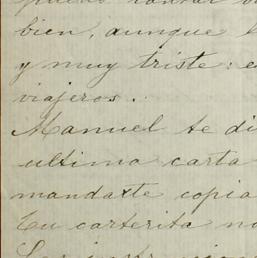 bien, aunque
y muy triste: e
viajeros.
Manuel te di
ultima carta
mandaxte copia
Tu carterita no